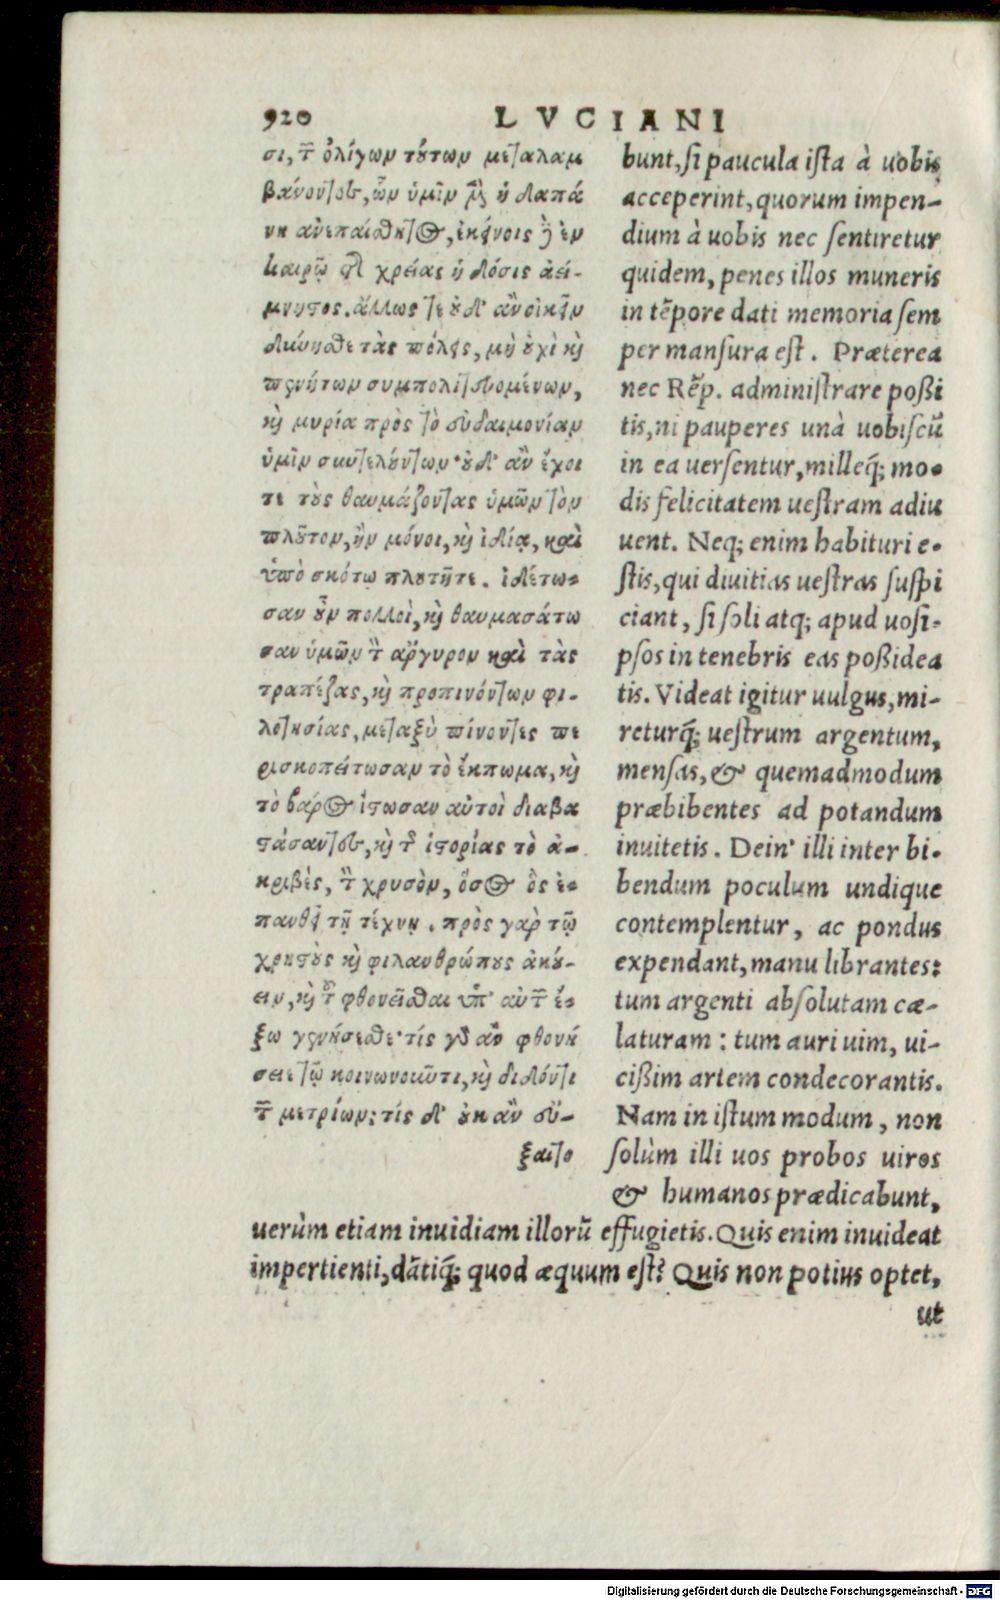 920 LVCIANI
σι, τῶν ὀλίγων τούτων μεταλαμ
βάνοντες, ὧν ὑμῖν μὲν ἡ δαπά
νη ἀνεπαίσθητος, ἐκείνοις δὲ ἐν
καιρῷ τῆς χρείας ἡ δόσις ἀεί-
μνηστος. ἄλλως τε οὐδ' ἂν οἰκεῖν
δύνησθε τὰς πόλεις, μὴ οὐχὶ καὶ
πενήτων συμπολιτευομένων,
καὶ μυρία πρὸς τὸ εὐδαιμονίαν
ὑμῖν συντελούντων· οὐδ' ἂν ἔχοι
τε τοὺς θαυμάζοντας ὑμῶν τὸν
πλοῦτον, ἢν μόνοι, καὶ ἰδίᾳ, καὶ
ὑπὸ σκότῳ πλουτῆτε. ἰδέτω-
σαν οὖν πολλοὶ, καὶ θαυμασάτω
σαν ὑμῶν τὸν ἄργυρον καὶ τὰς
τραπέζας, καὶ προπινόντων φι-
λοτησίας, μεταξὺ πίνοντες πε
ρισκοπείτωσαν τὸ ἔκπωμα, καὶ
τὸ βάρος ἴστωσαν αὐτοὶ διαβα
στάσαντες, καὶ τῆς ἱστορίας τὸ ἀ-
κριβὲς, τὸν χρυσὸν, ὅσος ὃς ἐ-
πανθεῖ τῇ τέχνῃ. πρὸς γὰρ τῷ
χρηστοὺς καὶ φιλανθρώπους ἀκού-
ειν, καὶ τοῦ φθονεῖσθαι ὑπ' αὐτῶν ἔ-
ξω γενήσεσθε· τίς γὰρ ἂν φθονή
σειε τῷ κοινωνοῦντι, καὶ διδόντι
τῶν μετρίων; τίς δ' οὐκ ἂν εὔ-
ξαιτο
bunt, si paucula ista à uobis
acceperint, quorum impen-
dium à uobis nec sentiretur
quidem, penes illos muneris
in tẽpore dati memoria sem
per mansura est. Præterea
nec Rẽp. administrare possi
tis, ni pauperes unà uobiscũ
in ea uersentur, milleq́; mo-
dis felicitatem uestram adiu
uent. Neq; enim habituri e-
stis, qui diuitias uestras suspi
ciant, si soli atq; apud uosi-
psos in tenebris eas possidea
tis. Videat igitur uulgus, mi-
returq́; uestrum argentum,
mensas, & quemadmodum
præbibentes ad potandum
inuitetis. Dein' illi inter bi-
bendum poculum undique
contemplentur, ac pondus
expendant, manu librantes:
tum argenti absolutam cæ-
laturam: tum auri uim, ui-
cissim artem condecorantis.
Nam in istum modum, non
solùm illi uos probos uiros
& humanos prædicabunt,
uerùm etiam inuidiam illorũ effugietis. Quis enim inuideat
impertienti, dãtiq́; quod æquum est? Quis non potius optet,
ut
Digitalisierung gefördert durch die Deutsche Forschungsgemeinschaft - DFG